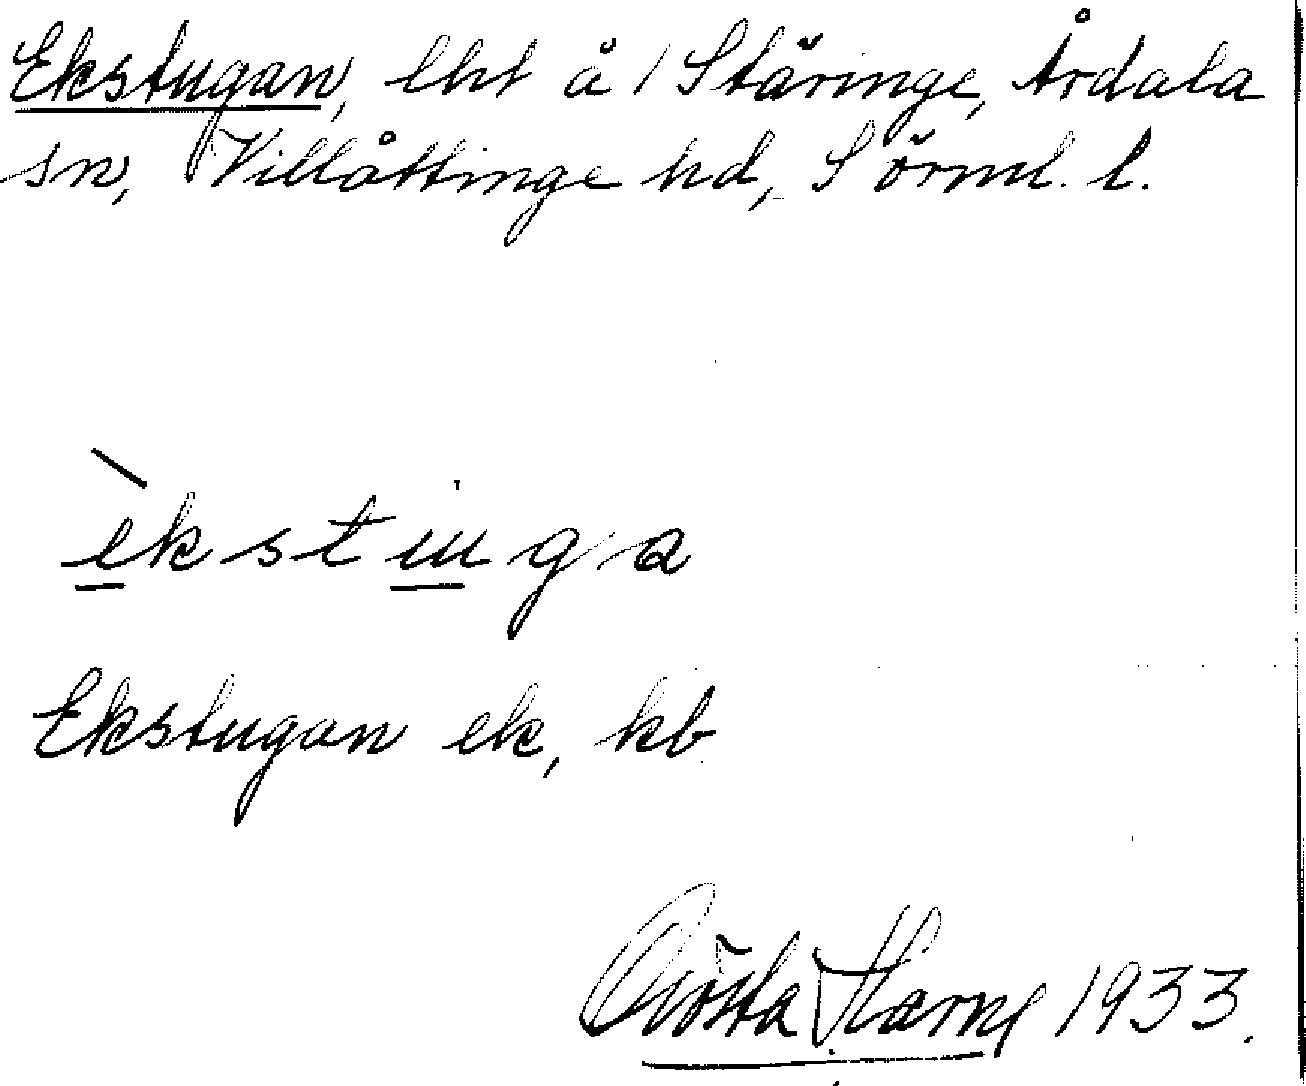 Ekstugan, lht å / Stäringe, Årdala
sn, Villåttinge hd, Sörml. l.
èkstuga
Ekstugan ek, kb
Gösta 1933.